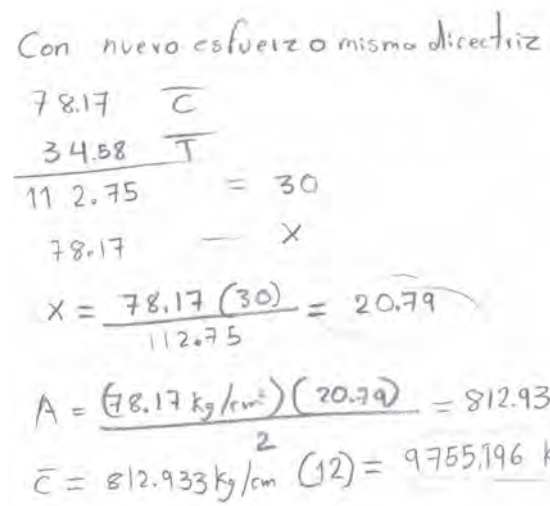 Con nuevo esfuerzo misma directriz
78.17 C̅
34.58 T̅
112.75 = 30
78.17 — X
X = 78.17 (30) / 112.75 = 20.79
A = (78.17 kg/cm²)(20.79) / 2 = 812.93
C̅ = 812.933 kg/cm (12) = 9755,196 k